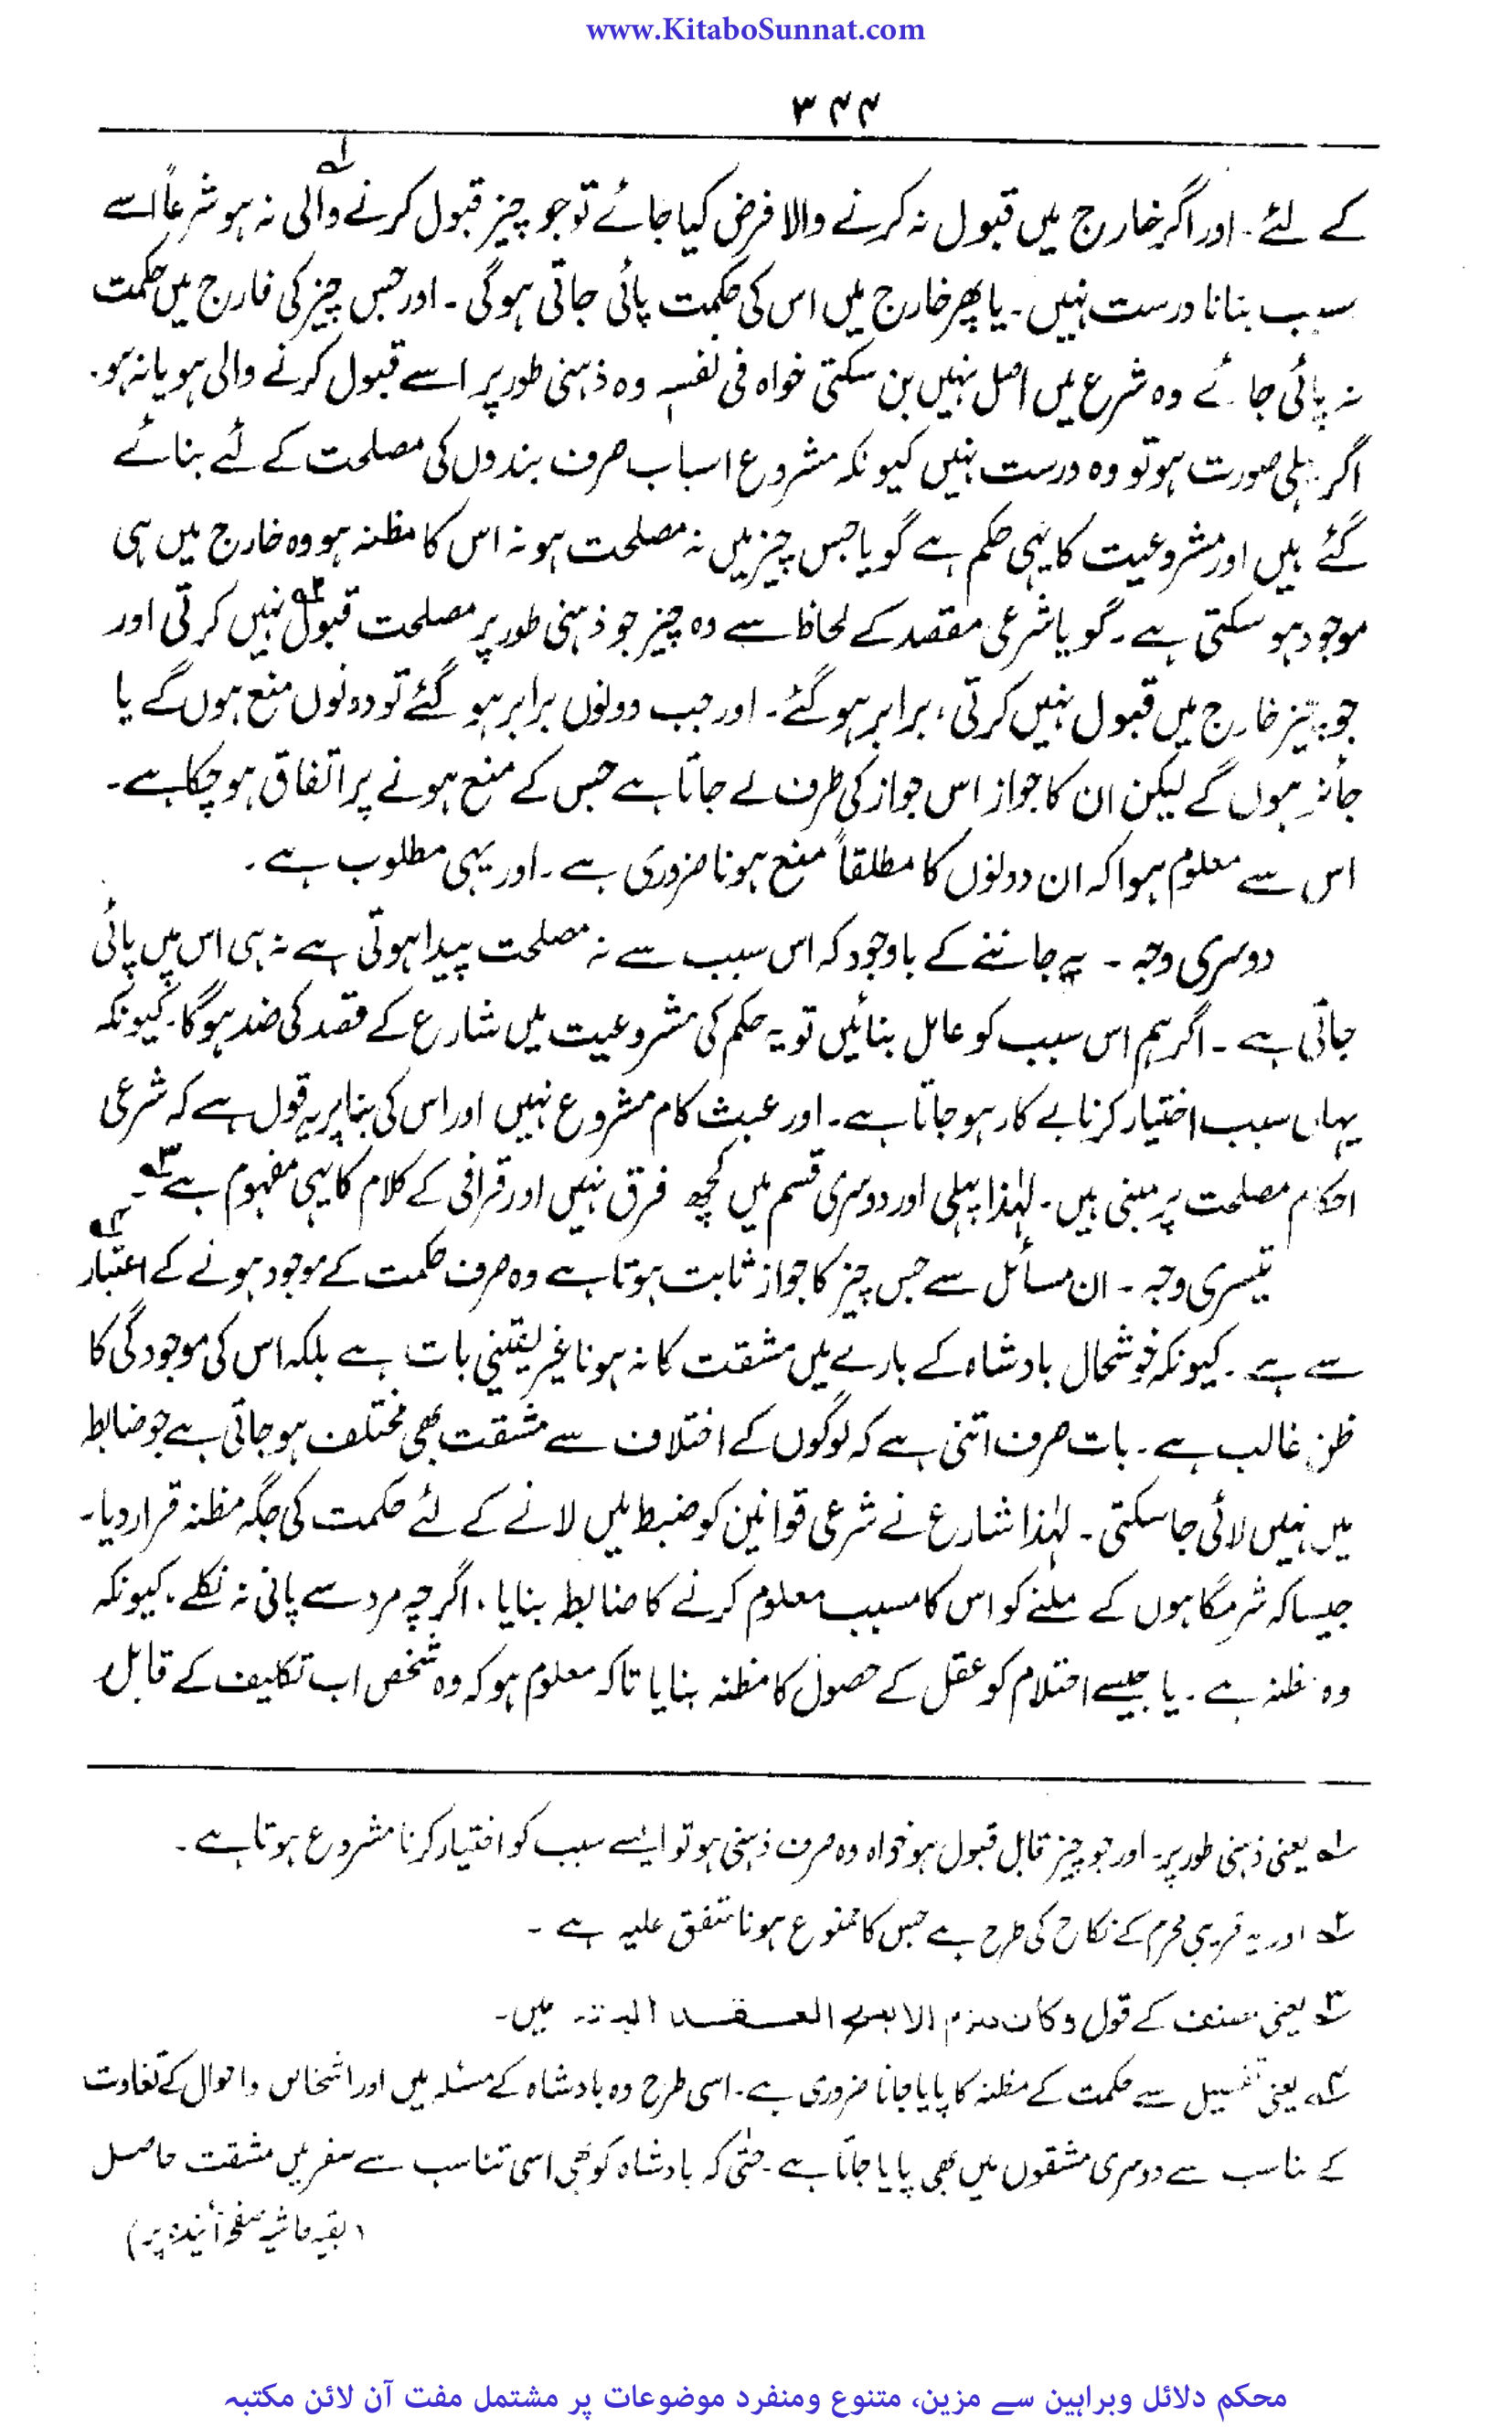 www.KitaboSunnat.com
۳۴۴
کے لئے۔ اور اگر خارج میں قبول نہ کرنے والا فرض کیا جائے تو جو چیز قبول کرنے والی نہ ہو شرعاً اسے
سبب بنانا درست نہیں۔ یا پھر خارج میں اس کی حکمت پائی جاتی ہوگی۔ اور جس چیز کی خارج میں حکمت
نہ پائی جائے وہ شرع میں اصل نہیں بن سکتی خواہ فی نفسہٖ وہ ذہنی طور پر اسے قبول کرنے والی ہو یا نہ ہو۔
اگر پہلی صورت ہو تو وہ درست نہیں کیونکہ مشروع اسباب صرف بندوں کی مصلحت کے لئے بنائے
گئے ہیں اور مشروعیت کا یہی حکم ہے گویا جس چیز میں نہ مصلحت ہو نہ اس کا مظنہ ہو وہ خارج میں ہی
موجود ہو سکتی ہے۔ گویا شرعی مقصد کے لحاظ سے وہ چیز جو ذہنی طور پر مصلحت قبول۲؎ نہیں کرتی اور
جو چیز خارج میں قبول نہیں کرتی، برابر ہو گئے۔ اور جب دونوں برابر ہو گئے تو دونوں منع ہوں گے یا
جائز ہوں گے لیکن ان کا جواز اس جواز کی طرف لے جاتا ہے جس کے منع ہونے پر اتفاق ہو چکا ہے۔
اس سے معلوم ہوا کہ ان دونوں کا مطلقاً منع ہونا ضروری ہے۔ اور یہی مطلوب ہے۔
دوسری وجہ ۔ یہ جاننے کے باوجود کہ اس سبب سے نہ مصلحت پیدا ہوتی ہے نہ ہی اس میں پائی
جاتی ہے۔ اگر ہم اس سبب کو عامل بنائیں تو یہ حکم کی مشروعیت میں شارع کے قصد کی ضد ہوگا۔ کیونکہ
یہاں سبب اختیار کرنا بے کار ہو جاتا ہے۔ اور عبث کام مشروع نہیں اور اس کی بنا پر یہ قول ہے کہ شرعی
احکام مصلحت پر مبنی ہیں۔ لہٰذا پہلی اور دوسری قسم میں کچھ فرق نہیں اور قرافی کے کلام کا یہی مفہوم ہے۳؎۔
تیسری وجہ ۔ ان مسائل سے جس چیز کا جواز ثابت ہوتا ہے وہ صرف حکمت کے موجود ہونے کے اعتبار۴؎
سے ہے۔ کیونکہ خوشحال بادشاہ کے بارے میں مشقت کا نہ ہونا غیر یقینی بات ہے بلکہ اس کی موجودگی کا
ظن غالب ہے۔ بات صرف اتنی ہے کہ لوگوں کے اختلاف سے مشقت بھی مختلف ہو جاتی ہے جو ضابطہ
میں نہیں لائی جا سکتی۔ لہٰذا شارع نے شرعی قوانین کو ضبط میں لانے کے لئے حکمت کی جگہ مظنہ قرار دیا۔
جیسا کہ شرمگاہوں کے ملنے کو اس کا مسبب معلوم کرنے کا ضابطہ بنایا، اگرچہ مرد سے پانی نہ نکلے، کیونکہ
وہ مظنہ ہے۔ یا جیسے احتلام کو عقل کے حصول کا مظنہ بنایا تاکہ معلوم ہو کہ وہ شخص اب تکلیف کے قابل
۱؎ یعنی ذہنی طور پر۔ اور جو چیز قابل قبول ہو خواہ وہ صرف ذہنی ہو تو ایسے سبب کو اختیار کرنا مشروع ہوتا ہے۔
۲؎ اور یہ قریبی محرم کے نکاح کی طرح ہے جس کا ممنوع ہونا متفق علیہ ہے ۔
۳؎ یعنی مصنف کے قول وکان العقد البتۃ میں۔
۴؎ یعنی تفصیل سے حکمت کے مظنہ کا پایا جانا ضروری ہے۔ اسی طرح وہ بادشاہ کے مسئلہ میں اور اشخاص و احوال کے تفاوت
کے تناسب سے دوسری مشقوں میں بھی پایا جاتا ہے۔ حتیٰ کہ بادشاہ کو بھی اسی تناسب سے سفر میں مشقت حاصل
(بقیہ حاشیہ صفحہ آئندہ پر)
محکم دلائل وبراہین سے مزین، متنوع ومنفرد موضوعات پر مشتمل مفت آن لائن مکتبہ